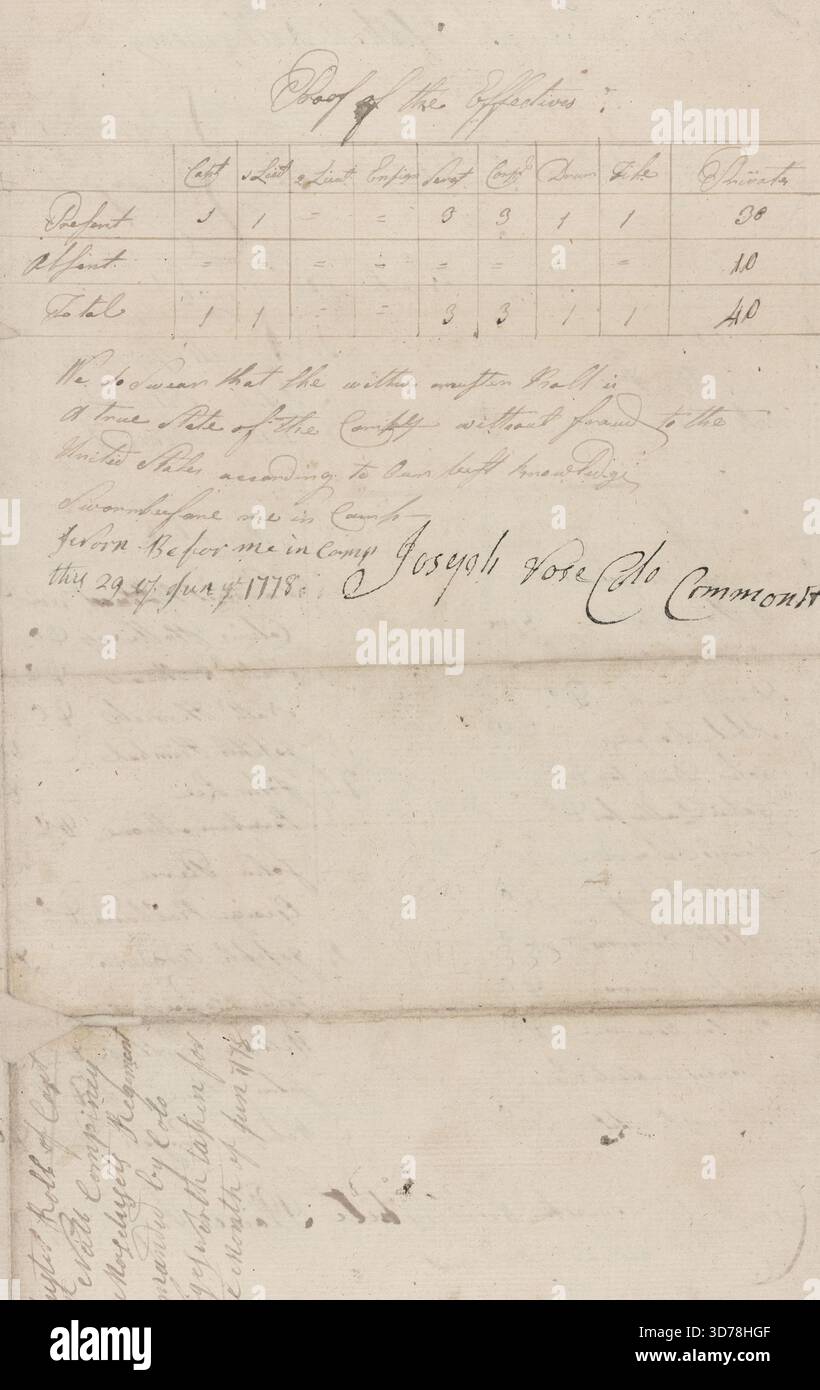 Proof of the Effectives
Capt 1 Lieut 2 Lieut Ensign Sergt Corpl Drum Fife Privates
Present 1 1 = = 3 3 1 1 30
Absent = = = = = = = = 10
Total 1 1 = = 3 3 1 1 40
We do Swear that the within muster Roll is
A true State of the Compy without fraud to the
United States according to Our best knowledge
Sworn before me in Camp
Sworn Befor me in Camp
this 29 of Jun yt 1778
Joseph Vose Colo Commont
Roll of Capt
Compiney
Regiment
manded by Colo
taken for
Month of Jun 1778
alamy
alamy
Image ID: 3D78HGF
www.alamy.com